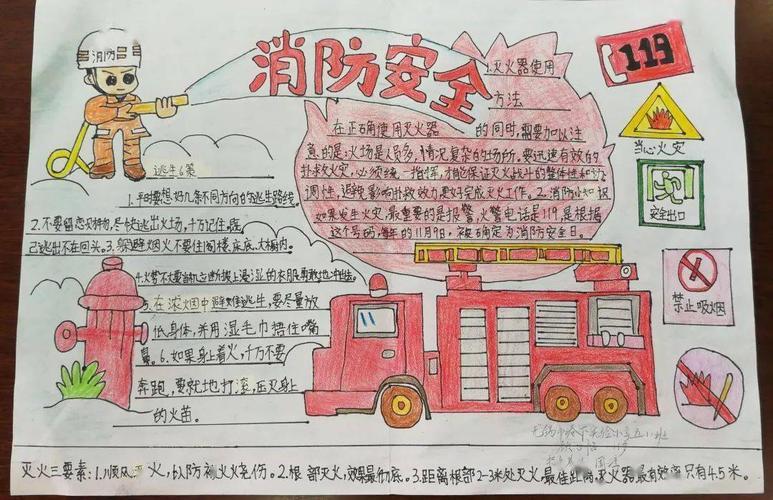 消防
消防安全
119
1.灭火器使用
方法
在正确使用灭火器 的同时,需要加以注
意的是:火场是人员多,情况复杂的场所,要迅速有效的
扑救火灾,必须统一指挥,才能保证灭火战斗的整体性和协
调性,避免影响扑救效力更好完成灭火工作。2.消防小知识
如果发生火灾,最重要的是报警,火警电话是119,是根据
这个号码,每年的11月9日,被确定为消防安全日。
当心火灾
安全出口
禁止吸烟
逃生6策
1.平时要想好几条不同方向的逃生路线。
2.不要留恋财物,尽快逃出火场,千万记住,既
已逃出不在回头。3.躲避烟火不要往阁楼床底、大橱内。
4.火势不大要当机立断披上浸湿的衣服勇敢地冲出去。
5.在浓烟中避难逃生,要尽量放
低身体,并用湿毛巾捂住嘴
鼻。6.如果身上着火,千万不要
奔跑,要就地打滚,压灭身上
的火苗。
五小班
灭火三要素:1.顺风 火,以防被火烧伤。2.根部灭火,效果最彻底。3.距离根部2-3米处灭火最佳距离,灭火器最有效 只有4.5米。